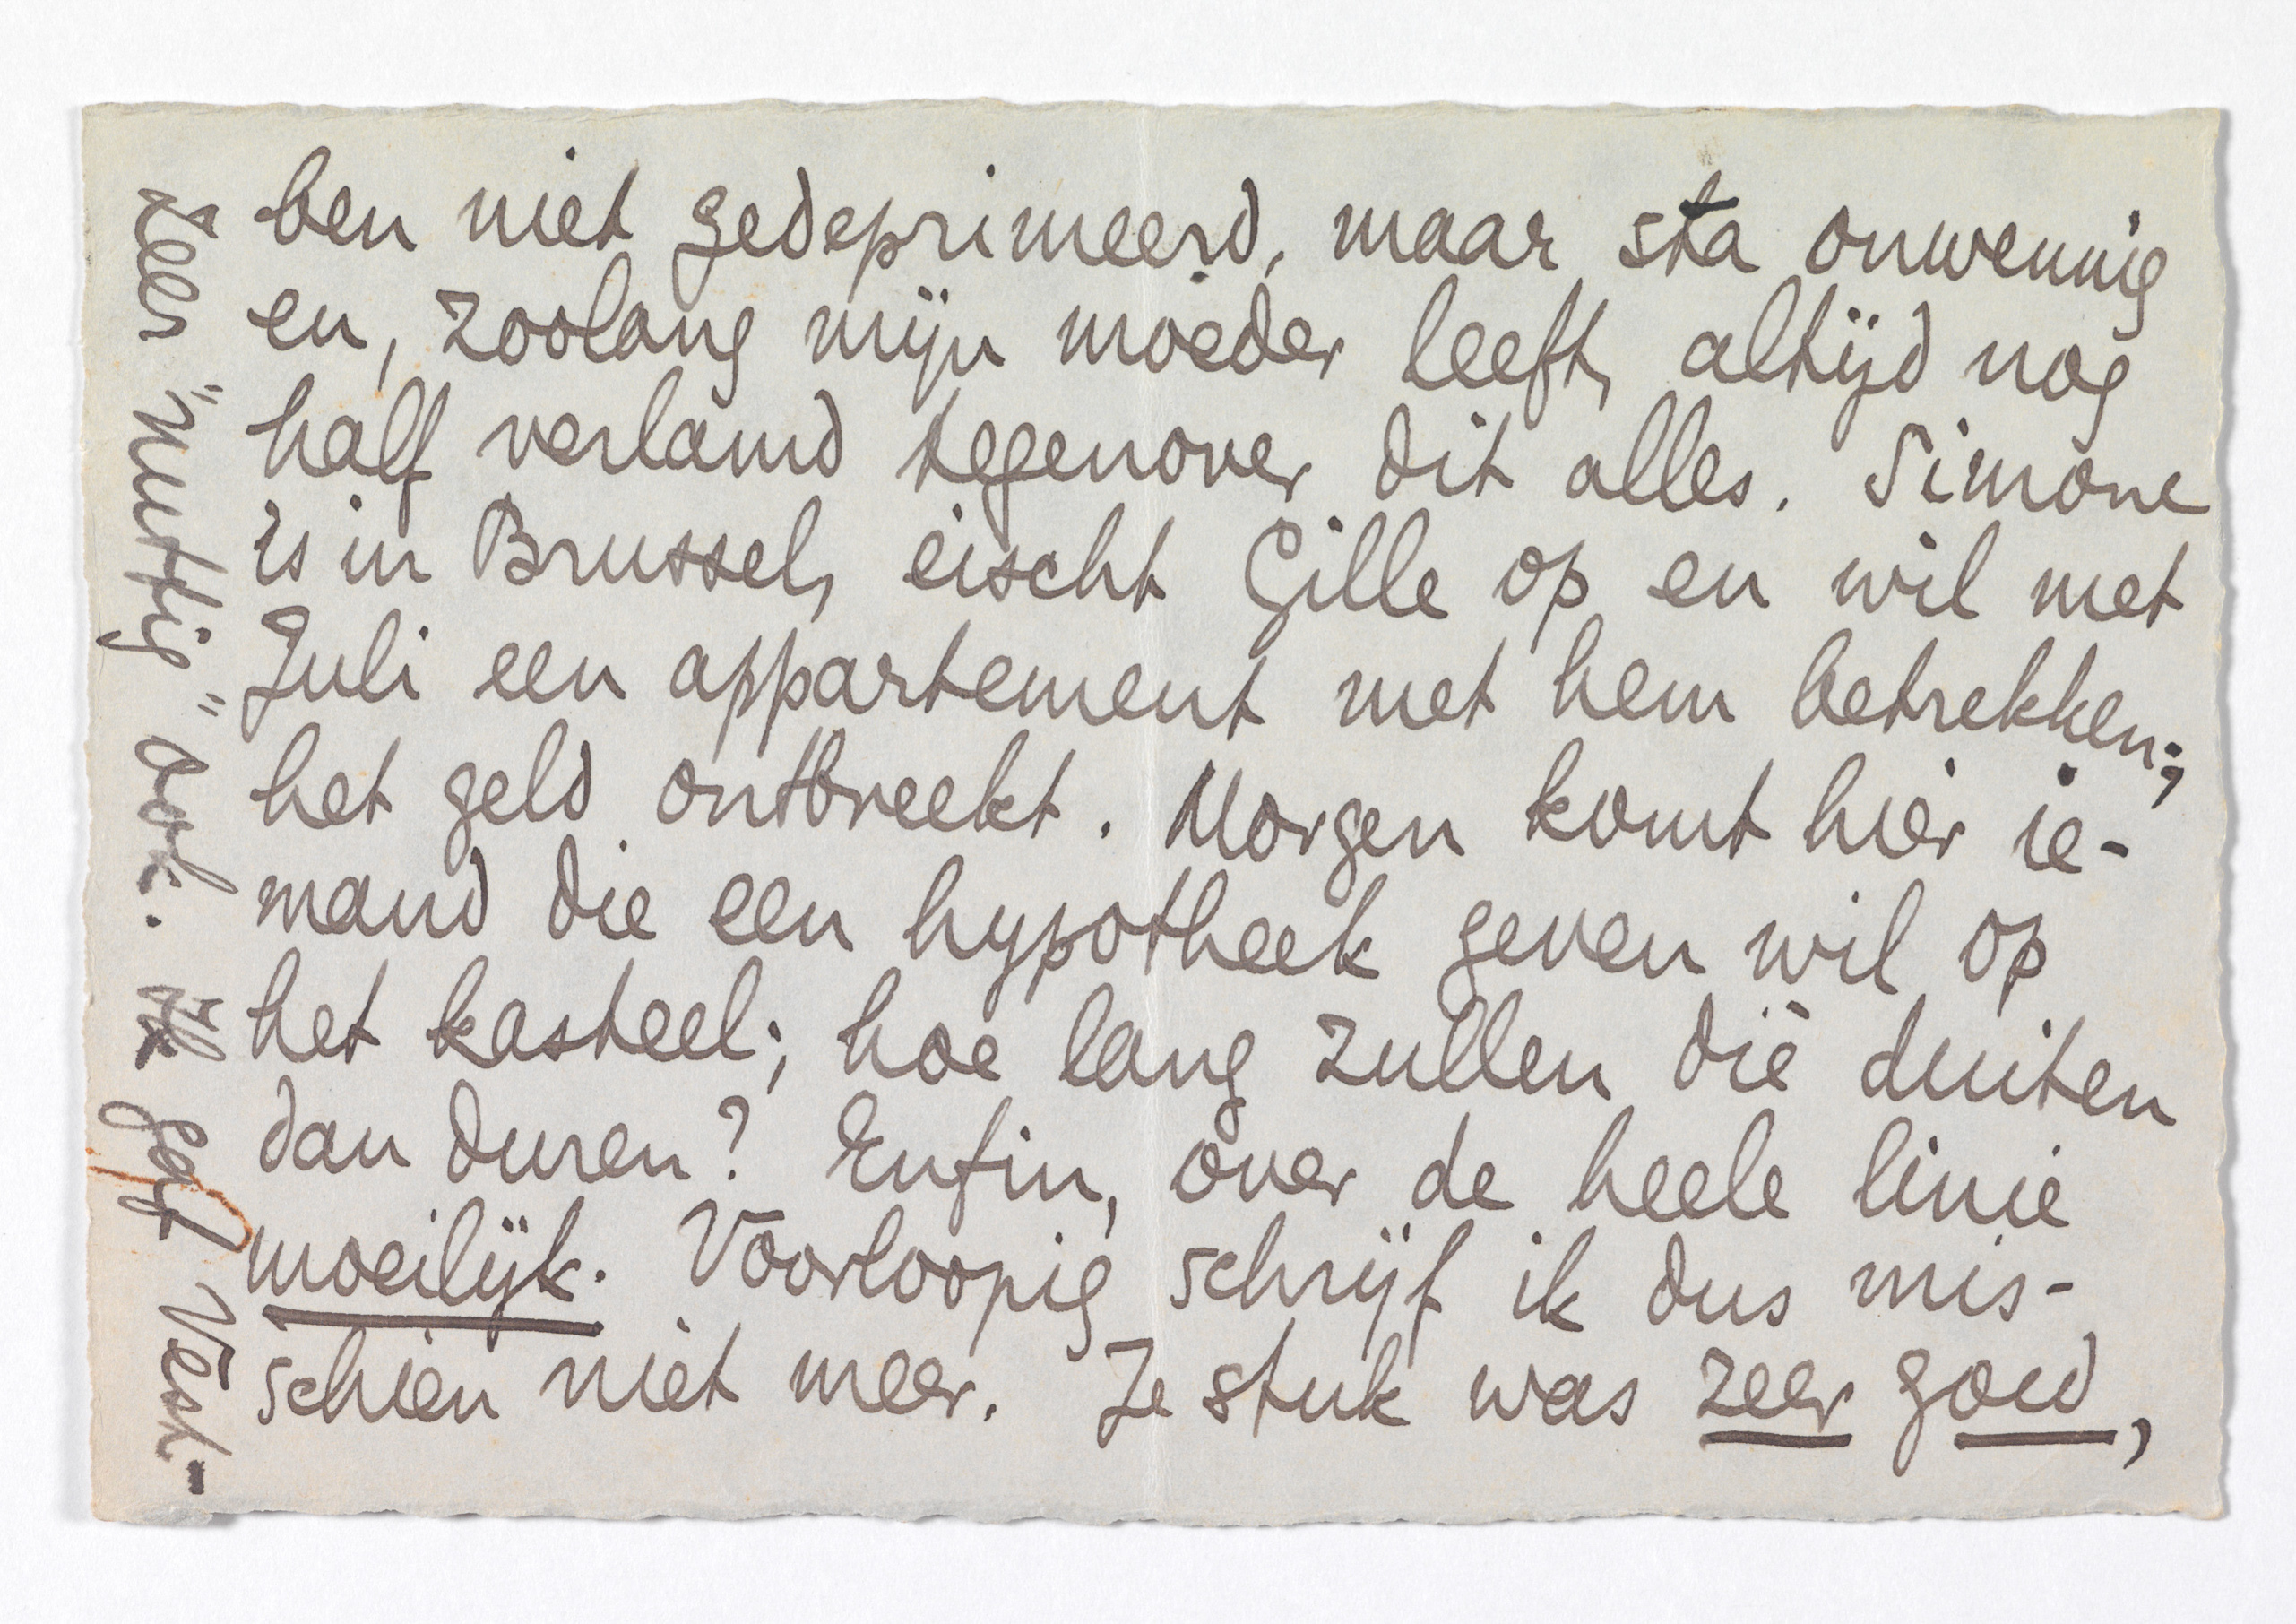 ben niet gedeprimeerd, maar sta onwennig
en, zoolang mijn moeder leeft, altijd nog
half verlamd tegenover dit alles. Simone
is in Brussel, eischt Gille op en wil met
Juli een appartement met hem betrekken;
het geld ontbreekt. Morgen komt hier ie-
mand die een hypotheek geven wil op
het kasteel; hoe lang zullen die duiten
dan duren? Enfin, over de heele linie
moeilijk. Voorloopig schrijf ik dus mis-
schien niet meer. Je stuk was zeer goed,
zeer "nuttig" ook. Ik gaf Vest-